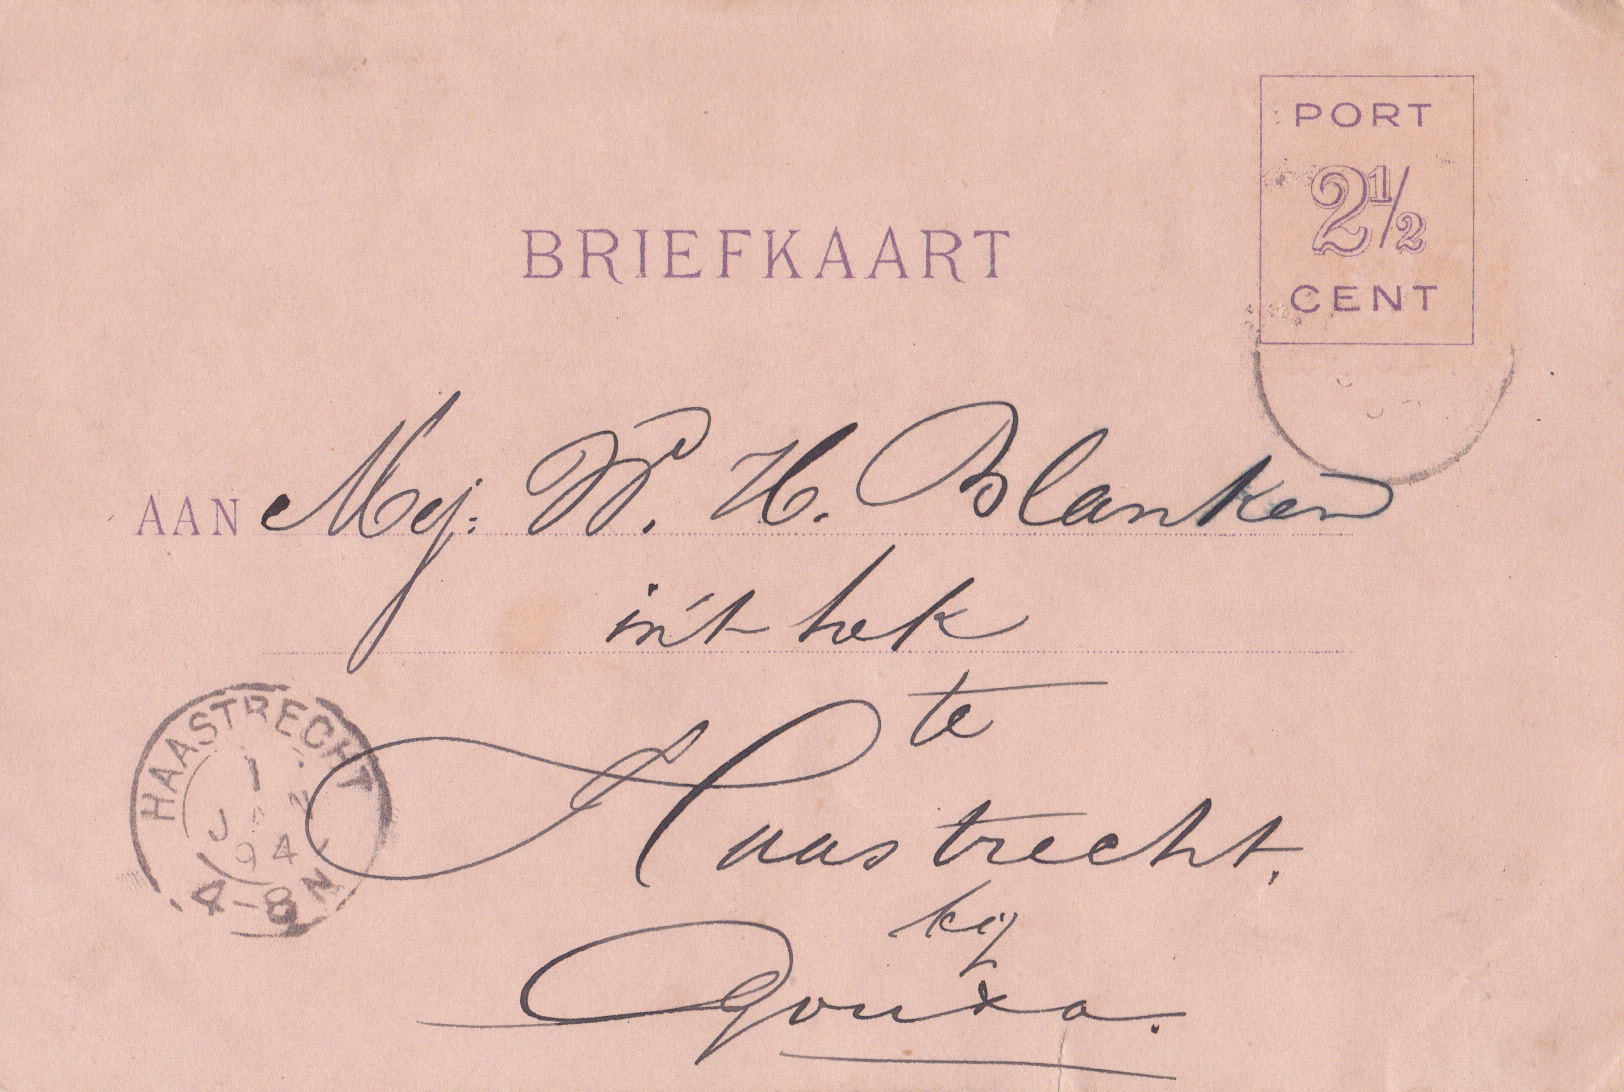 PORT
2½
CENT
BRIEFKAART
AAN Mej: W. H. Blanken
in't hek
te
Haastrecht.
bij
Gouda.
HAASTRECHT
1
JAN
94
4-8N